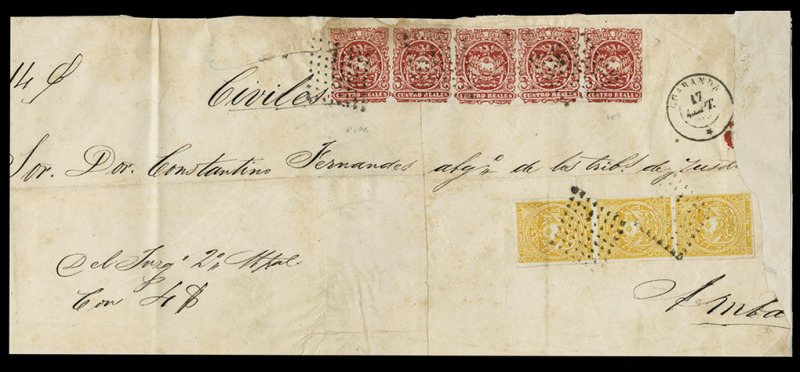 14 ₷
Civiles
CUATRO REALES CUATRO REALES CUATRO REALES CUATRO REALES CUATRO REALES
GUARANDA
17
SEPT.
Sor. Dor. Constantino Fernandes abgo. de los tribs. de
Del Juzgo 2o
Con 4 ₷
Amba